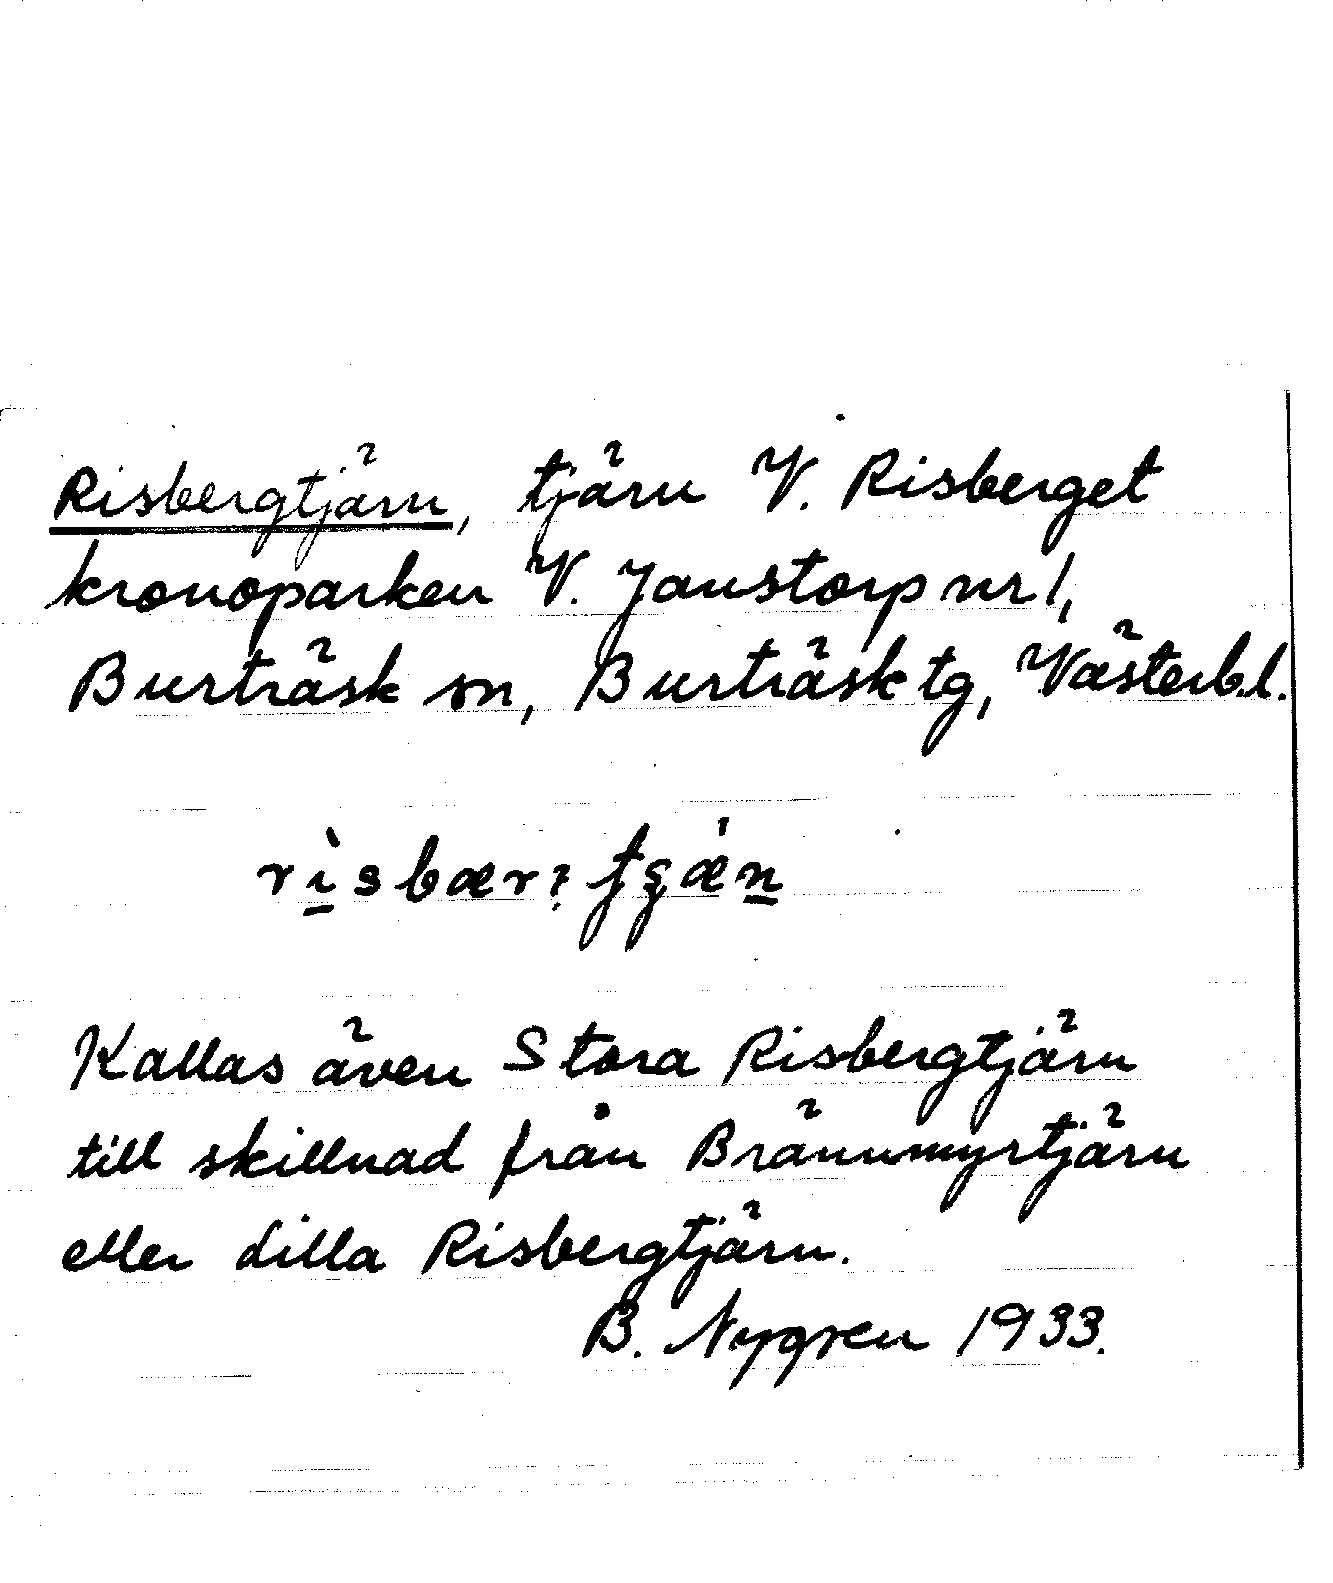 Risbergtjärn, tjärn V. Risberget
kronoparken V. Janstorp nr 1,
Burträsk sn, Burträsk tg, Västerb.l.
Kallas även Stora Risbergtjärn
till skillnad från Brännmyrtjärn
eller Lilla Risbergtjärn.
B. Nygren 1933.